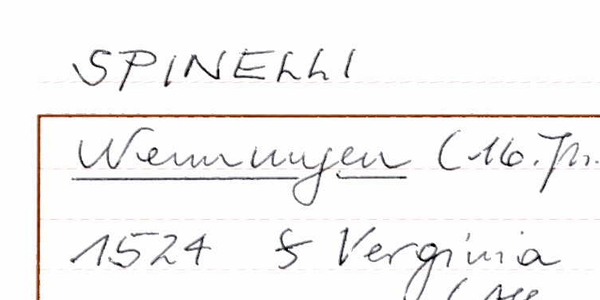 SPINELLI
Wemmingen (16. Jh.
1524 & Verginia